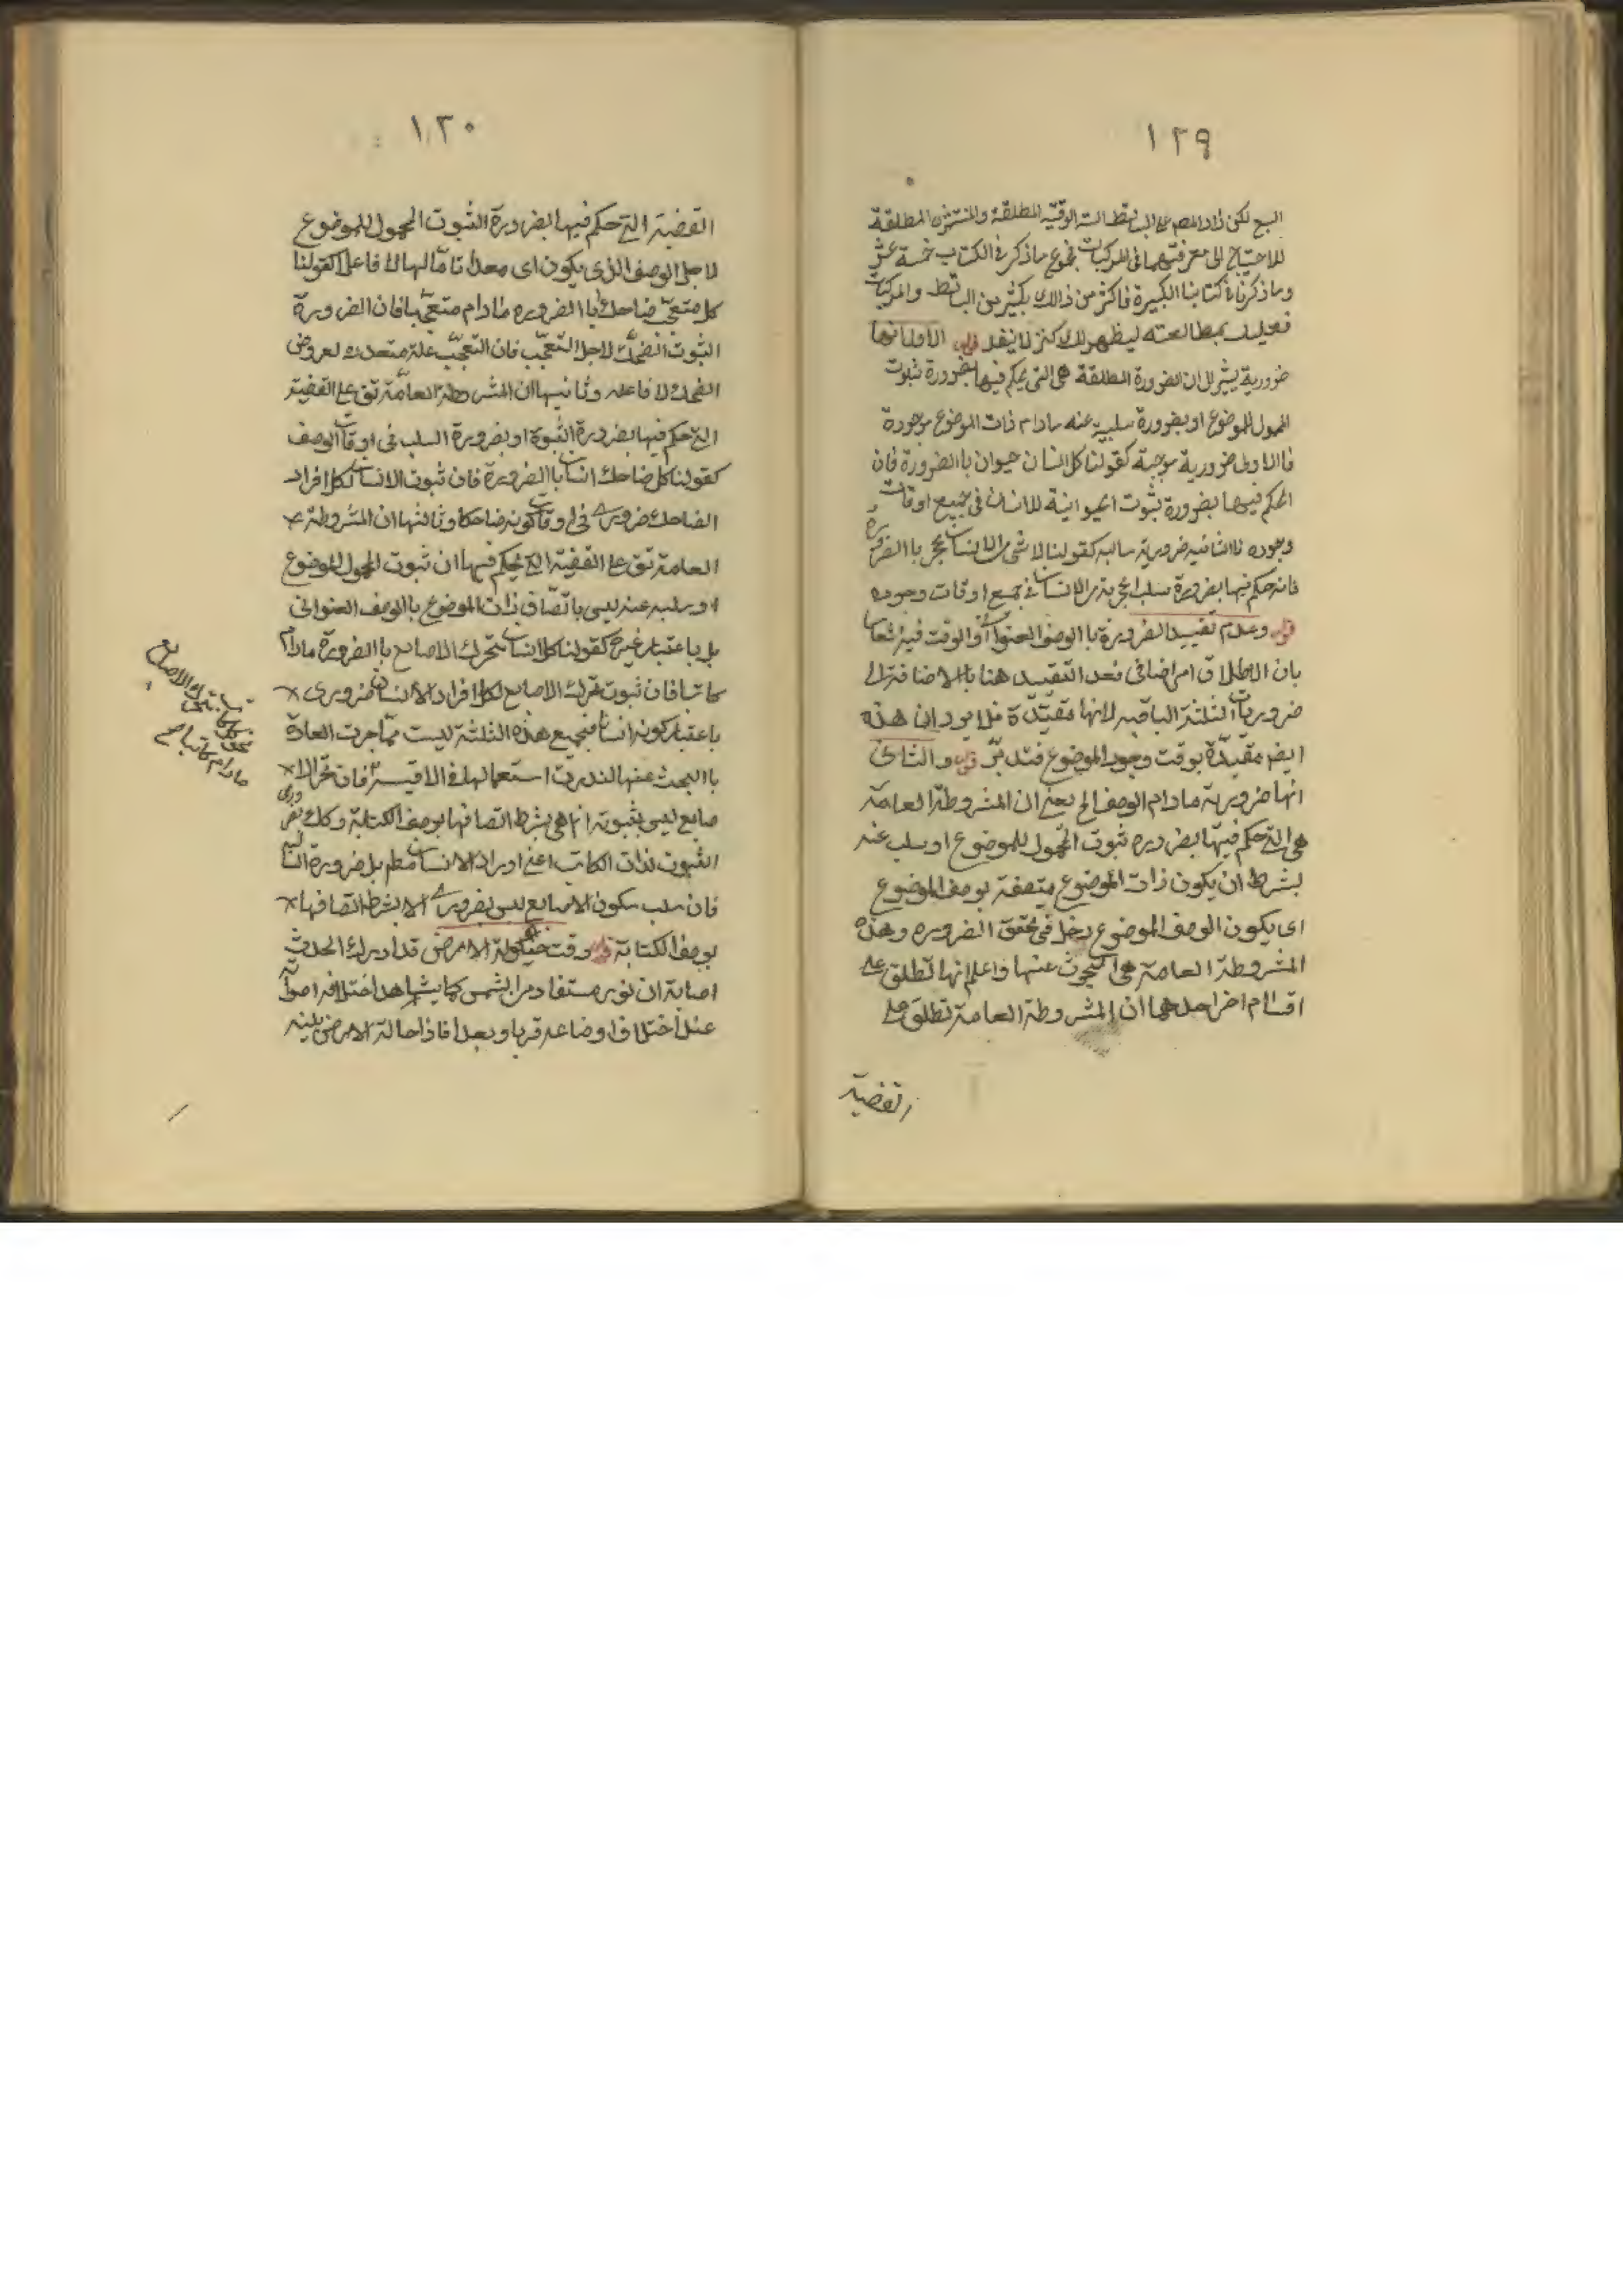 ١٢٩
السبع لكن زاد المصم على البسائط الستة الوقتية المطلقة والمنتشرة المطلقة
للاحتياج الى معرفتهما فى المركبات فمجموع ما ذكر فى الكتاب خمسة عشر
وما ذكرنا فى كتابنا الكبيرة فاكثر من ذالك بكثير من البسائط والمركبات
فعليك بمطالعته ليظهر لك كنز لا ينفد قوله الاول انها
ضرورية يشير الى ان الضرورة المطلقة هى التى يحكم فيها بضرورة ثبوت
المحمول للموضوع او بضرورة سلبية عنه مادام ذات الموضوع موجودة
فالاولى ضرورية موجبة كقولنا كل انسان حيوان باالضرورة فان
الحكم فيها بضرورة ثبوت الحيوانية للانسان فى جميع اوقات
وجوده واالثانيه ضرورية سالبه كقولنا لا شى من الانسان بحجر باالضرورة
فانه حكم فيها بضرورة سلب الحجرية من الانسان فى جميع اوقات وجوده
قوله وعدم تقييد الضرورة باالوصف العنوانى او الوقت فيه اشعار
بان الاطلاق امر اضافى فعدم التقييد هنا باالاضافة الى
ضروريات الثلثة الباقيه لانها مقيّدة فلا يرد ان هذه
ايضم مقيّدة بوقت وجود الموضوع فتدبّر قوله والثانى
انها ضرورية مادام الوصف الخ يعنى ان المشروطة العامة
هى التى حكم فيها بضروره ثبوت المحمول للموضوع او سلب عنه
بشرط ان يكون ذات الموضوع متصفة بوصف الموضوع
اى يكون الوصف الموضوع دخل فى تحقق الضروره وهذه
المشروطة العامة هى المبحوث عنها واعلم انها تطلق على
اقسام اخر احدهما ان المشروطة العامة تطلق على
القضية
١٣٠
القضية التى حكم فيها بضرورة الثبوت المحمول للموضوع
لاجل الوصف الذى يكون اى معدا تامّا لها لا فاعلا كقولنا
كل متعجّب ضاحك باالضروره مادام متعجّبا فان الضرورة
الثبوت الضحك لاجل التعجّب فان التعجّب علة متعدده لعروض
الضحك لا فاعله وثانيها ان المشروطة العامّة تق على القضية
التى حكم فيها بضرورة الثبوة او بضرورة السلب فى اوقات الوصف
كقولنا كل ضاحك انسان باالضرورة فان ثبوت الانسان لكل افراد
الضاحك ضرورى فى اوقات كونه ضاحكا وثالثها ان المشروطة
العامة تق على القضية التى يحكم فيها ان ثبوت المحمول للموضوع
او سلبه عنه ليس باتّصاف ذات الموضوع باالوصف العنوانى
بل باعتبار غيره كقولنا كل انسان متحرك الاصابع باالضرورة مادام
كاتبا فان ثبوت تحرك الاصابع لكل افراد الانسان ضرورى
باعتبار كونه انسانا فجميع هذه الثلثة ليست ممّا جرت العادة
باالبحث عنها لندرت استعمالها فى الاقيسة فان تحرك الا
صابع ليس بثبوته انم هى بشرط اتصافها بوصف الكتابة وكك ضرورى
الثبوت لذات الكاتب اعنى اوراد الانسان مطم بل ضرورة السالبة
فان سلب سكون الاصابع ليس بضرورى الا بشرط اتصافها
بوصف الكتابة قوله وقت حيلولة الارض قد ادرك الحدث
اصابة ان نوره مستفاد من الشمس كما يشاهد اختلافه احواله
عند اختلاف اوضاعه قربا وبعدا فاذا حالة الارض بينه
مادام كاتبا صح